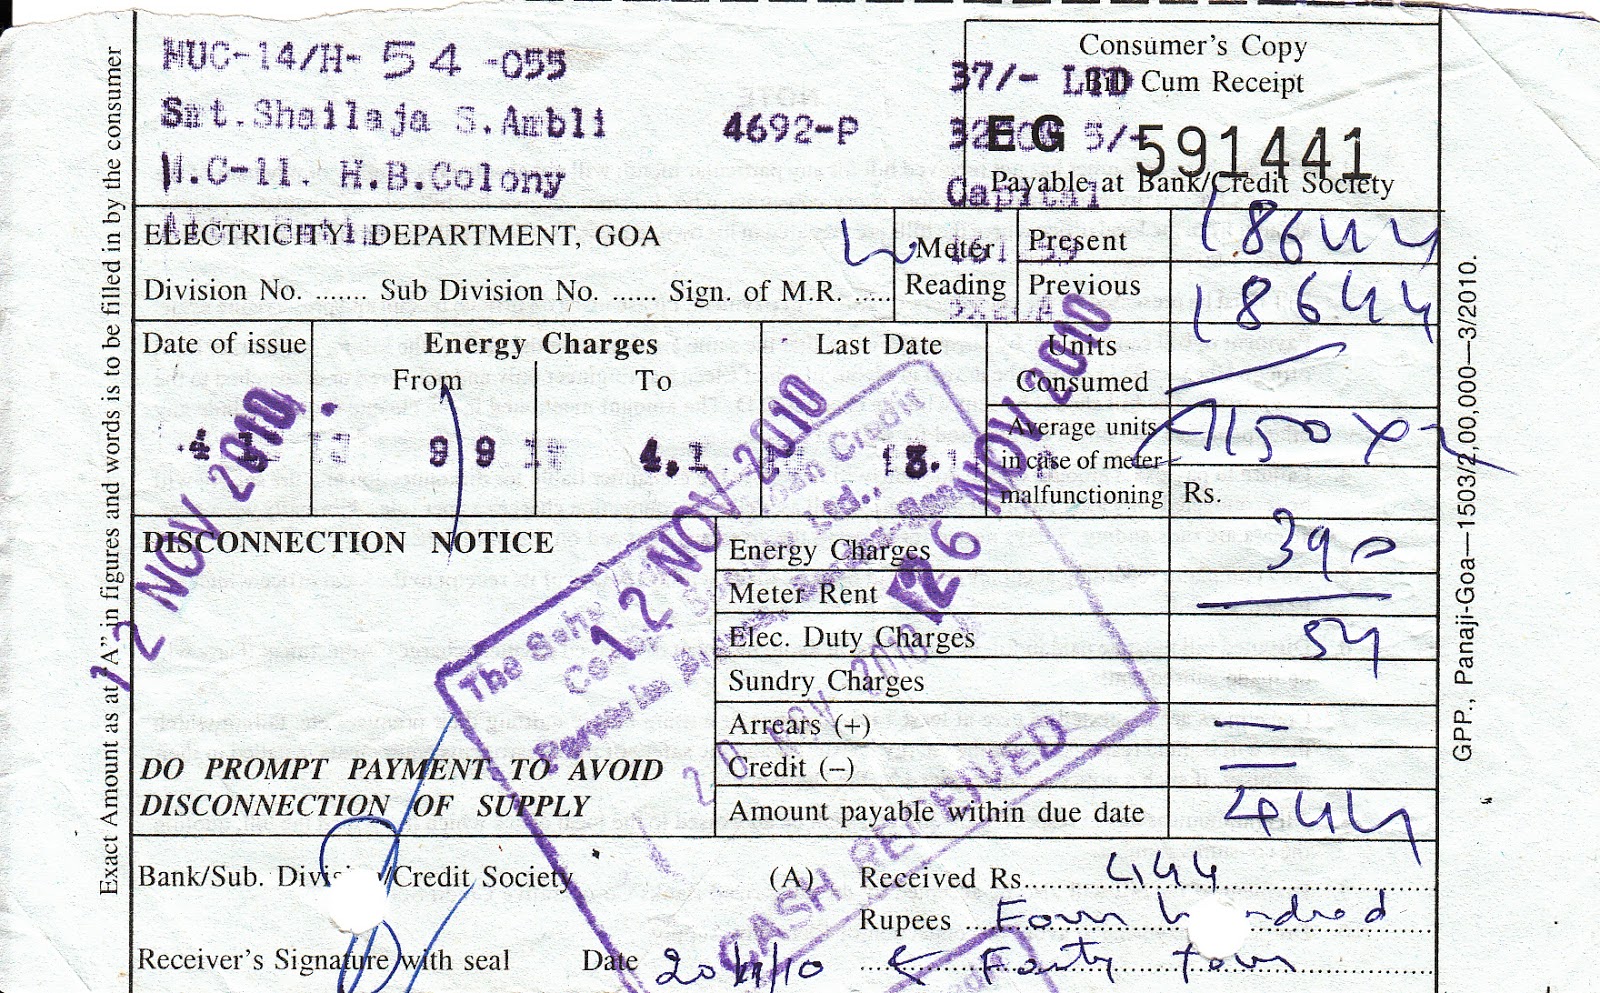 MUC-14/H- 54 -055
Smt.Shailaja S.Ambli 4692-P
H.C-11. H.B.Colony
37/- LTD
5/-
Capital
Consumer's Copy
Bill Cum Receipt
EG 591441
Payable at Bank/Credit Society
ELECTRICITY DEPARTMENT, GOA
Division No. ....... Sub Division No. ...... Sign. of M.R. .....
Meter Reading
Present 18644
Previous 18644
Date of issue
Energy Charges
From To
Last Date
4 1
9 9
4.1
13.
12 NOV 2010
12 NOV 2010
26 NOV 2010
Units Consumed
Average units in case of meter malfunctioning
150 x 2
Rs.
DISCONNECTION NOTICE
Energy Charges 390
Meter Rent
Elec. Duty Charges 54
Sundry Charges
Arrears (+)
Credit (–)
Amount payable within due date 444
DO PROMPT PAYMENT TO AVOID
DISCONNECTION OF SUPPLY
Credit
Ltd.,
20 NOV 2010
CASH RECEIVED
Bank/Sub. Division/Credit Society
(A) Received Rs. 444
Rupees Four hundred
Receiver's Signature with seal Date 20/11/10 & Fourty four
Exact Amount as at "A" in figures and words is to be filled in by the consumer
GPP., Panaji-Goa—1503/2,00,000—3/2010.